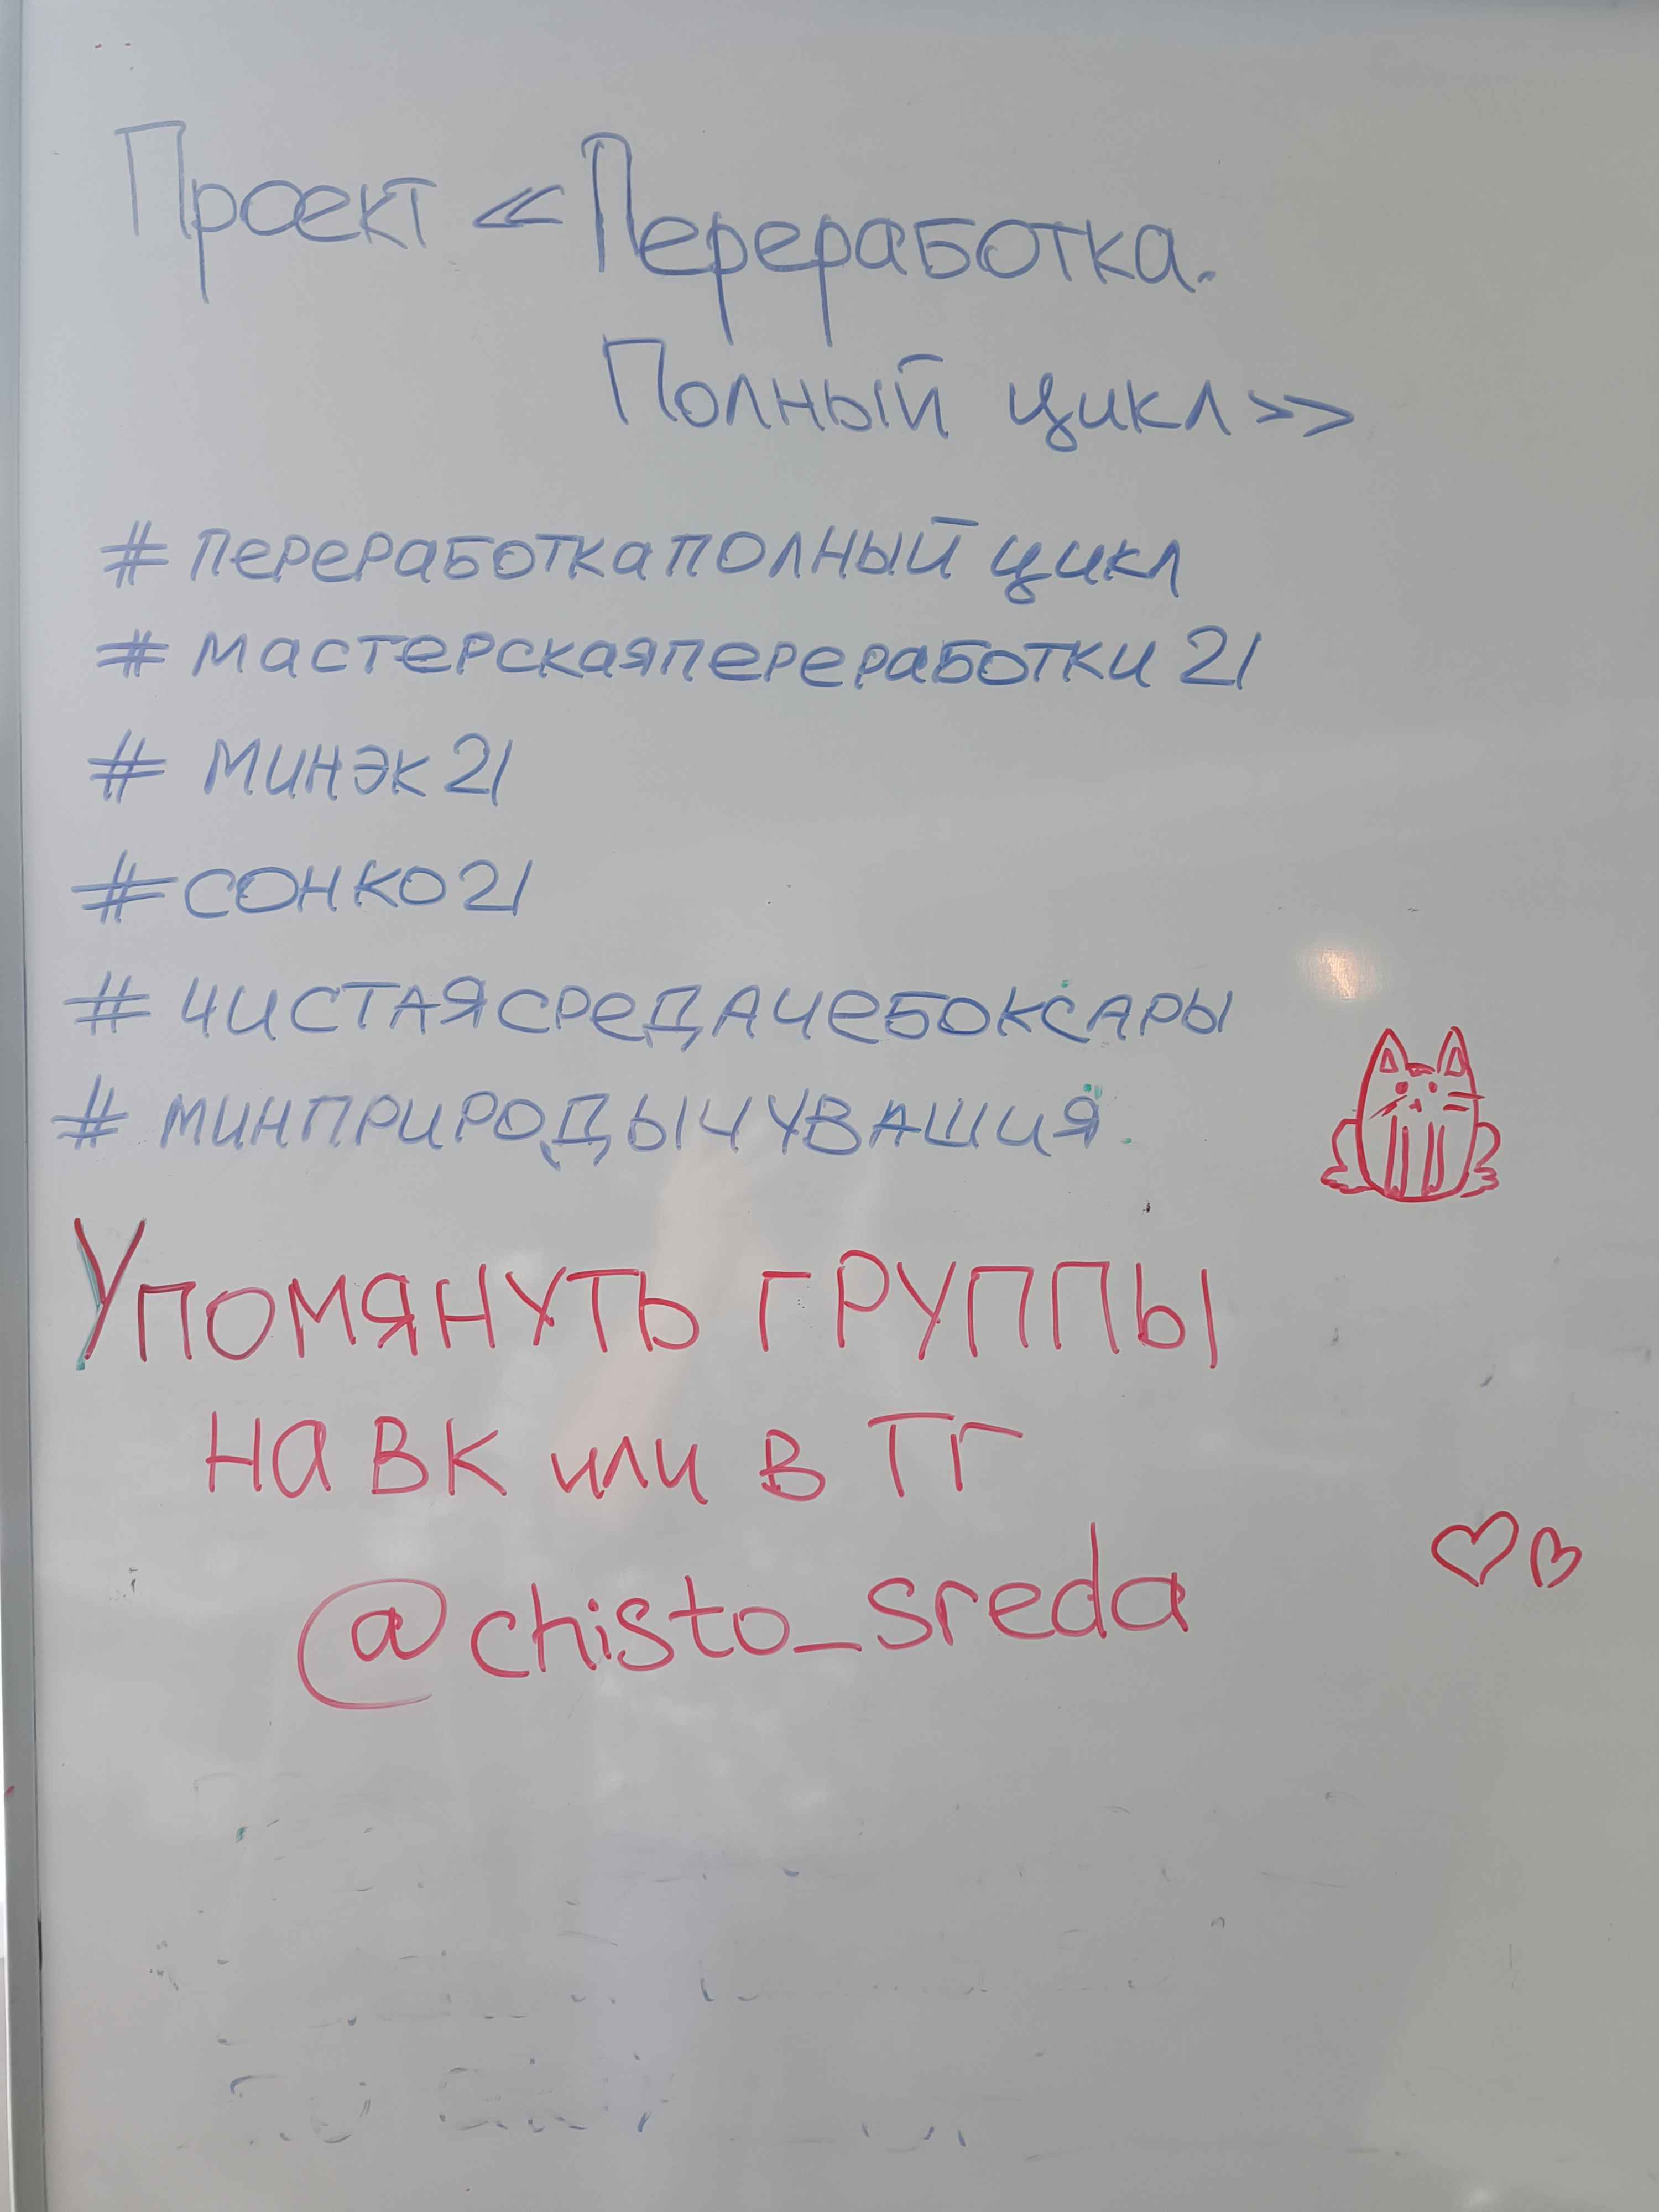 Проект «Переработка.
Полный цикл»
#переработкаполныйцикл
#мастерскаяпереработки21
#минэк21
#сонко21
#чистаясредачебоксары
#минприродычувашия
Упомянуть группы
на ВК или в ТГ
@chisto_sreda